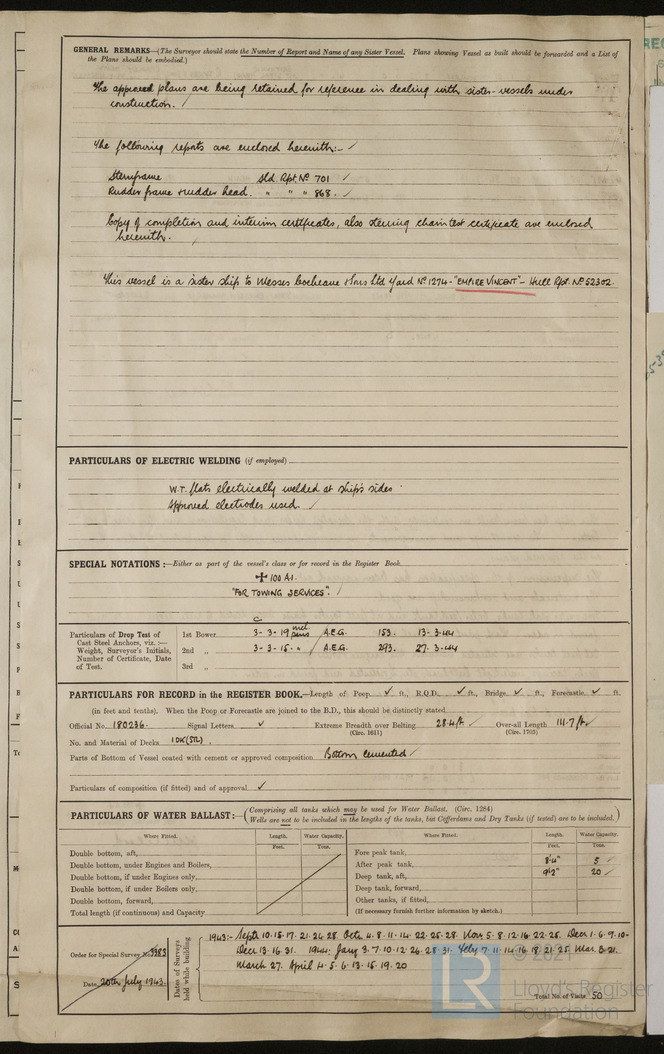 GENERAL REMARKS—(The Surveyor should state the Number of Report and Name of any Sister Vessel. Plans showing Vessel as built should be forwarded and a List of
the Plans should be embodied.)
The approved plans are being retained for reference in dealing with sister-vessels under
construction. ✓
The following reports are enclosed herewith:- ✓
Sternframe Sld. Rpt. No 701 ✓
Rudder frame & rudder head. " " " 868. ✓
Copy of completion and interim certificates, also steering chain test certificate are enclosed
herewith.
This vessel is a sister ship to Messrs Cochrane & Sons Ltd Yard No 1274 - "EMPIRE VINCENT" - Hull Rpt. No 52302.
PARTICULARS OF ELECTRIC WELDING (if employed)
W.T. flats electrically welded at ship's sides
Approved electrodes used. ✓
SPECIAL NOTATIONS:—Either as part of the vessel's class or for record in the Register Book
✠ 100 A1.
"FOR TOWING SERVICES". ✓
Particulars of Drop Test of
Cast Steel Anchors, viz.:—
Weight, Surveyor's Initials,
Number of Certificate, Date
of Test.
1st Bower 3- 3- 19 A.E.G. 153. 13- 3-44
2nd „ 3- 3- 15- " A.E.G. 293. 27- 3-44
3rd „
PARTICULARS FOR RECORD in the REGISTER BOOK.—Length of Poop ✓ ft., R.Q.D. ✓ ft., Bridge ✓ ft., Forecastle ✓ ft.
(in feet and tenths). When the Poop or Forecastle are joined to the B.D., this should be distinctly stated
Official No. 180236. Signal Letters ✓ Extreme Breadth over Belting 28.4 ft ✓ Over-all Length 111.7 ft ✓
(Circ. 1611) (Circ. 1703)
No. and Material of Decks 1 DK (STL).
Parts of Bottom of Vessel coated with cement or approved composition Bottom cemented ✓
Particulars of composition (if fitted) and of approval ✓
PARTICULARS OF WATER BALLAST:— (Comprising all tanks which may be used for Water Ballast. (Circ. 1284)
Wells are not to be included in the lengths of the tanks, but Cofferdams and Dry Tanks (if tested) are to be included.)
Where Fitted. Length. Water Capacity. Where Fitted. Length. Water Capacity.
Feet. Tons. Feet. Tons.
Double bottom, aft, Fore peak tank,
Double bottom, under Engines and Boilers, After peak tank, 5 ✓
Double bottom, if under Engines only, Deep tank, aft, 20 ✓
Double bottom, if under Boilers only, Deep tank, forward,
Double bottom, forward, Other tanks, if fitted,
Total length (if continuous) and Capacity (If necessary furnish further information by sketch.)
Order for Special Survey No.
Date 20th July 1943
Dates of Surveys
held while building
1943:- Sept. 10.15.17.21.24.28 Octr. 4.8.11.14.22.25.28 Nov. 5.8.12.16.22.25. Decr 1.6.9.10.
Decr 13.16.31. 1944: Jany 3.7.10.12.26.28.31. Feby 7.11.14.16.18.21.25 Mar. 3.21.
March 27. April 4.5.6.13.15.19.20
Total No. of Visits 50
© 2021
LR
Lloyd's Register
Foundation